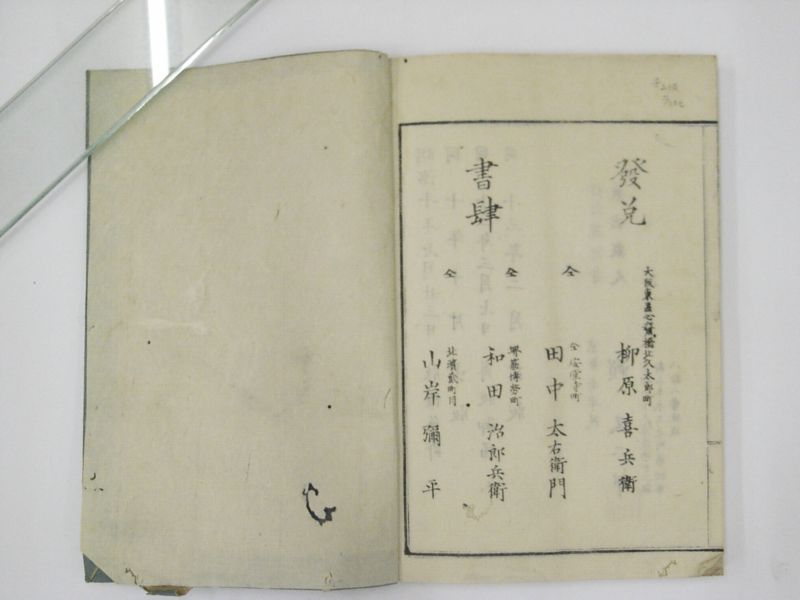 發兌
書肆
大阪東區心齋橋北久太郎町
柳原喜兵衛
仝
仝安堂寺町
田中太右衛門
仝
堺區博労町
和田治郎兵衛
仝
北濱貳町目
山岸彌平